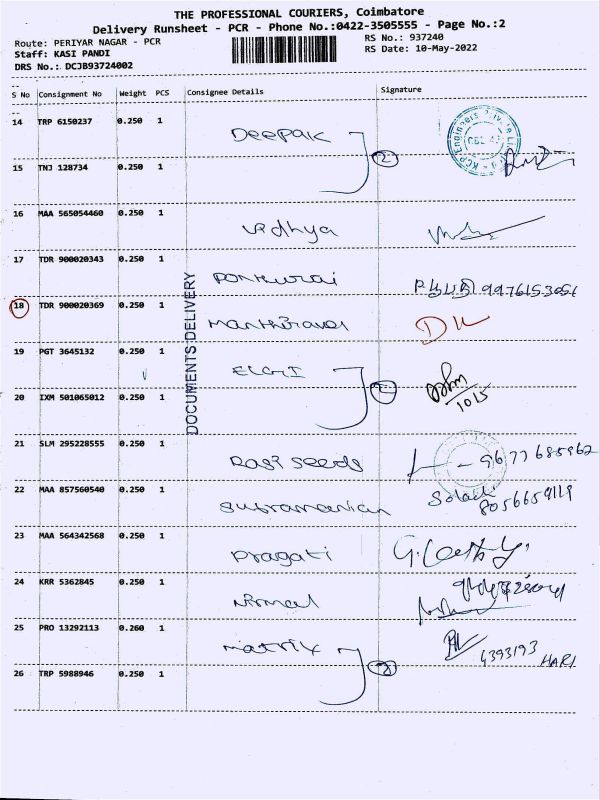 THE PROFESSIONAL COURIERS, Coimbatore
Delivery Runsheet - PCR - Phone No.:0422-3505555 - Page No.:2
Route: PERIYAR NAGAR - PCR
RS No.: 937240
Staff: KASI PANDI
RS Date: 10-May-2022
DRS No.: DCJB93724002
S No Consignment No Weight PCS Consignee Details Signature
14 TRP 6150237 0.250 1 Deepak 2
15 TNJ 128734 0.250 1
16 MAA 565054460 0.250 1 Vidhya
17 TDR 900020343 0.250 1 Ponthurai 9976153051
DOCUMENTS DELIVERY
18 TDR 900020369 0.250 1
19 PGT 3645132 0.250 1 ELGI 2 1015
20 IXM 501065012 0.250 1
21 SLM 295228555 0.250 1 Rasi Seeds - 9677685962
22 MAA 857560540 0.250 1 Subramanian 8056659119
23 MAA 564342568 0.250 1 Pragati
24 KRR 5362845 0.250 1 Nirmal
25 PRO 13292113 0.260 1 Matrix 2 4393193 HARI
26 TRP 5988946 0.250 1